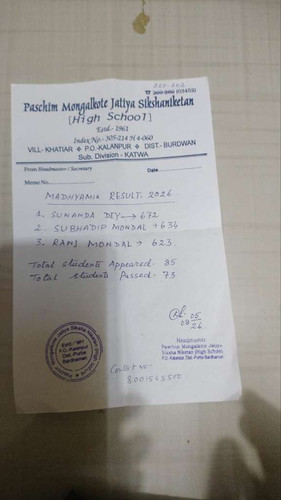 Paschim Mongalkote Jatiya Sikshaniketan
[High School]
Estd.- 1961
VILL- KHATIAR ❖ P.O.-KALANPUR ❖ DIST.- BURDWAN
Sub. Division - KATWA
From Headmaster / Secretary
Date
Memo No.
MADHYAMIK RESULT. 2026
1. SUNANDA DEY → 672
2. SUBHADIP MONDAL → 634
3. RANJ MONDAL → 623.
Total Students Appeared - 85
Total Students Passed - 73
08/05/26
Headmaster
Paschim Mongalkote Jatiya
Siksha Niketan (High School)
P.O. Kalanpur Dist. Purba Bardhaman
Estd.- 1961
P.O.-Kalanpur
Dist.-Purba
Bardhaman
Contact No-